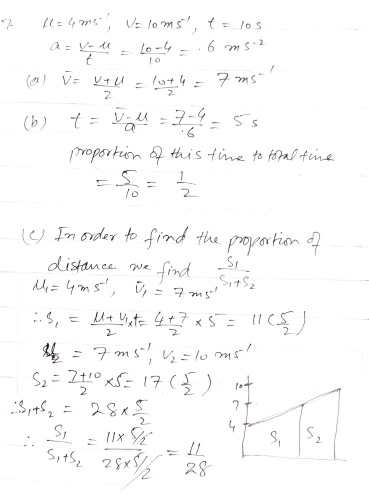 7. u = 4 ms⁻¹, v = 10 ms⁻¹, t = 10 s
a = (v-u)/t = (10-4)/10 = .6 ms⁻²
(a) v̄ = (v+u)/2 = (10+4)/2 = 7 ms⁻¹
(b) t = (v̄-u)/a = (7-4)/.6 = 5 s
proportion of this time to total time
= 5/10 = 1/2
(c) In order to find the proportion of
distance we find S₁/(S₁+S₂)
u₁ = 4 ms⁻¹, v̄₁ = 7 ms⁻¹
∴ S₁ = (u+v₁)/2 × t = (4+7)/2 × 5 = 11 (5/2)
= 7 ms⁻¹, v₂ = 10 ms⁻¹
S₂ = (7+10)/2 × 5 = 17 (5/2)
∴ S₁+S₂ = 28 × 5/2
∴ S₁/(S₁+S₂) = (11 × 5/2)/(28 × 5/2) = 11/28
10
7
4
S₁ S₂